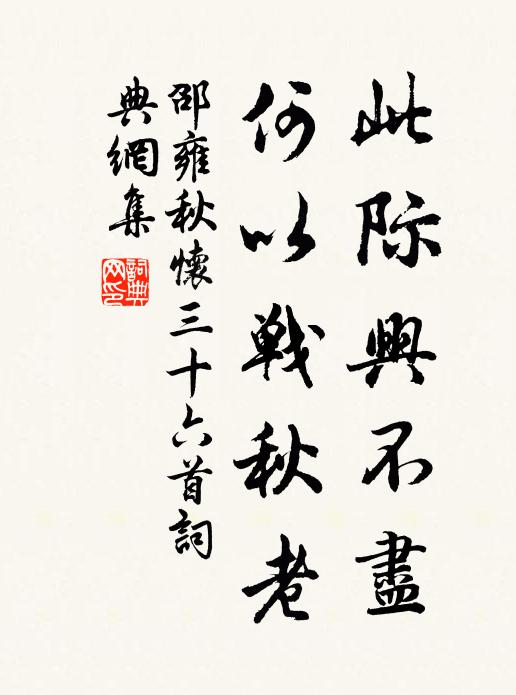 此际興不盡
何以戰秋老
邵雍秋懷三十六首詞
典網集
詞典
网印